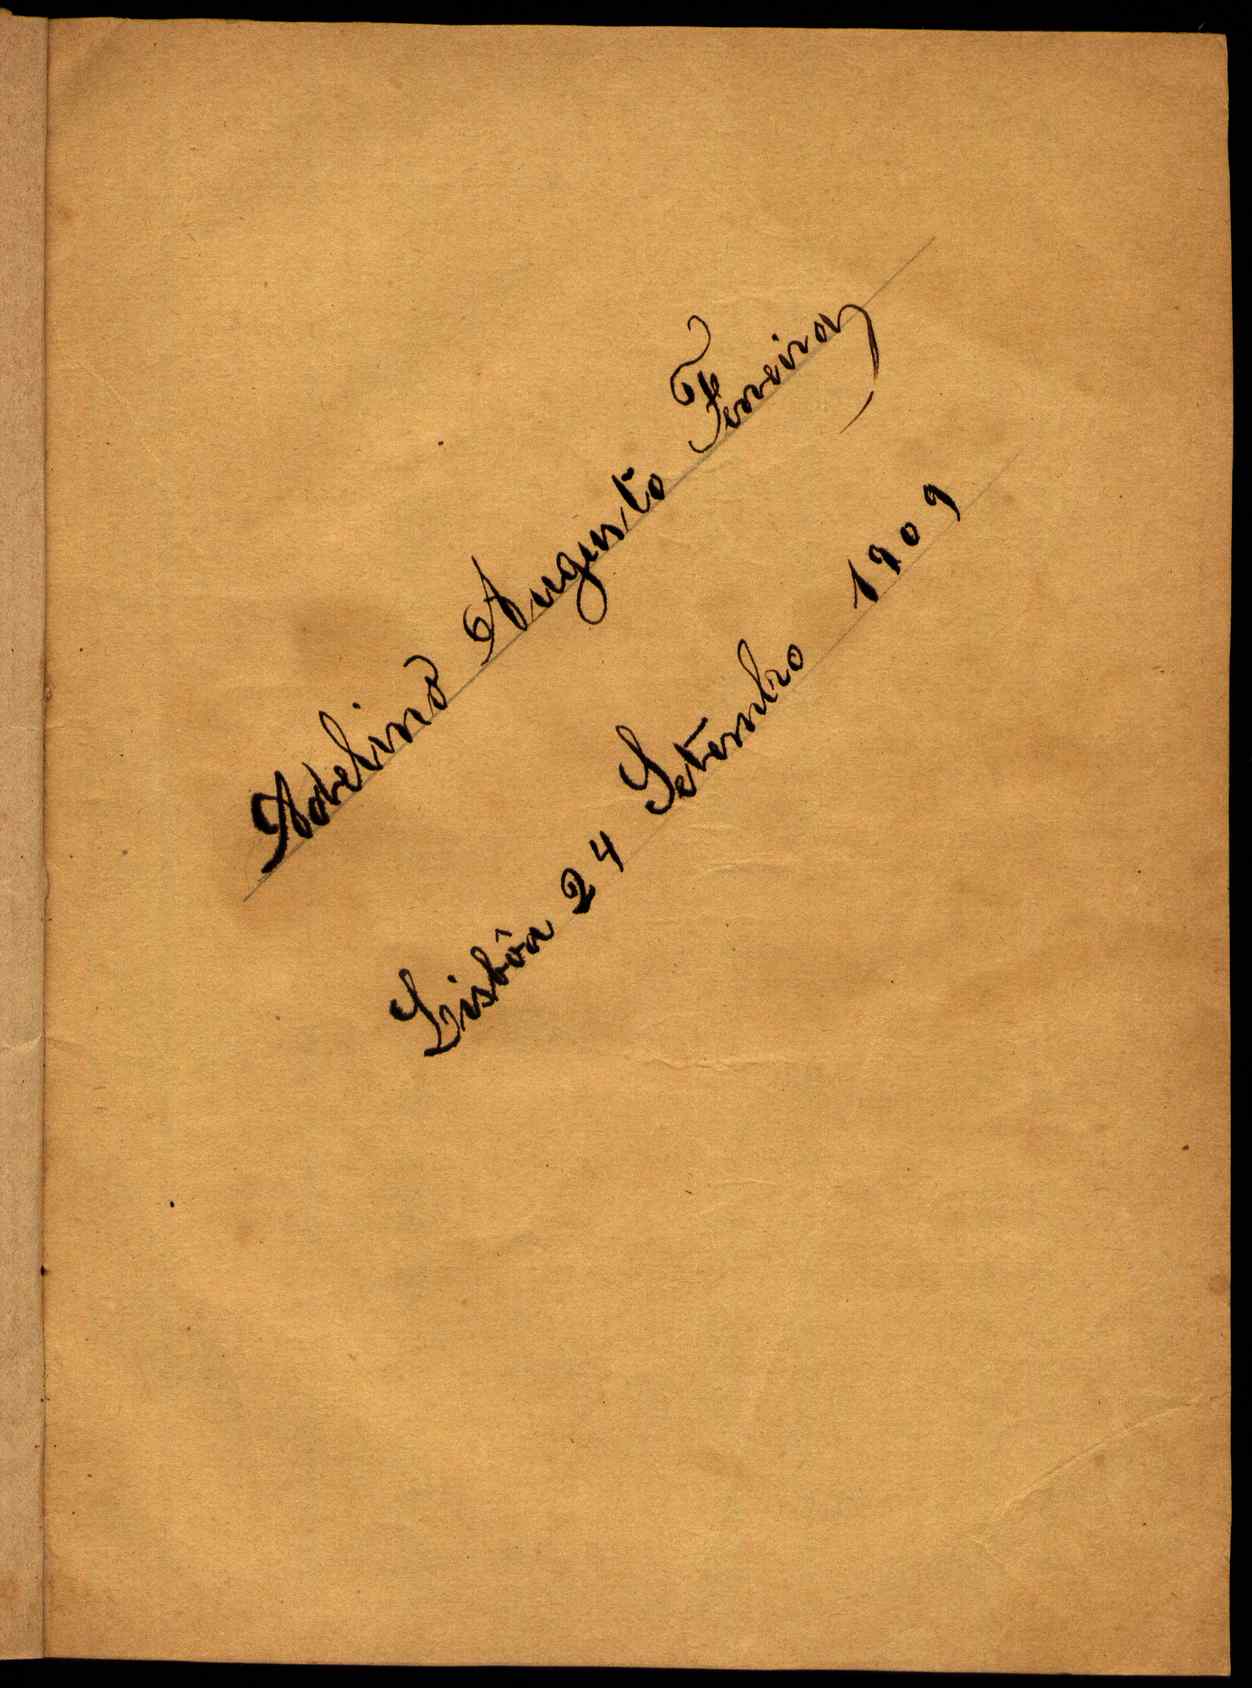 Adelino Augusto Ferreira
Lisbôa 24 Setembro 1909